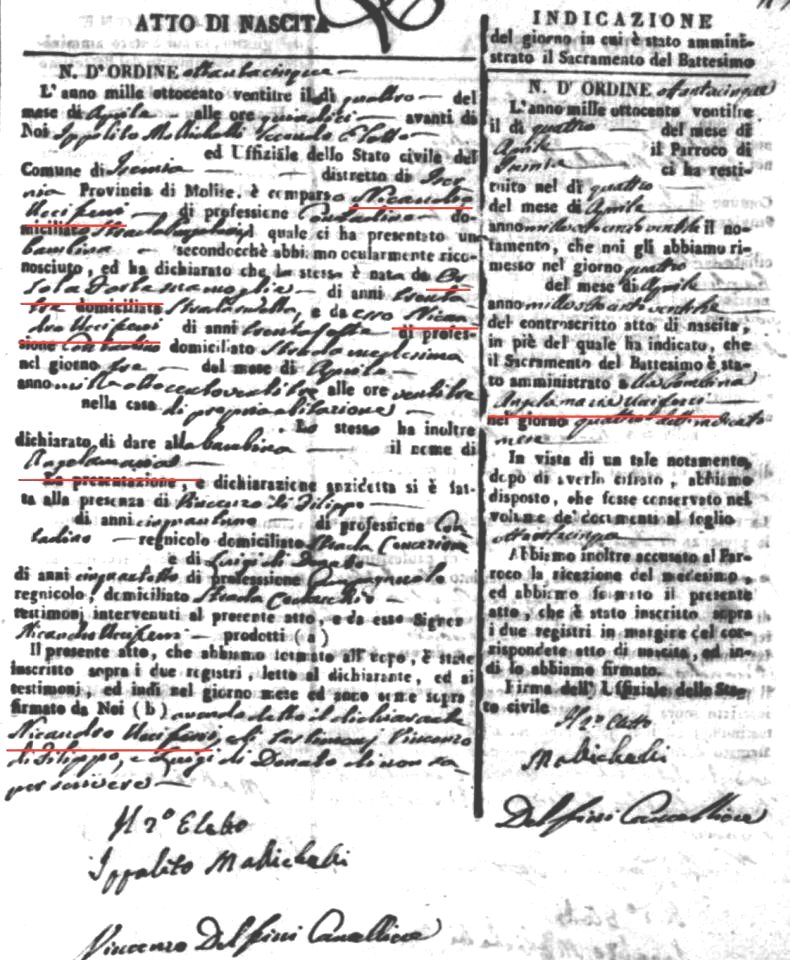 ATTO DI NASCITA
N. D'ORDINE ottantacinque
L'anno mille ottocento ventitre il dì quattro del
mese di Aprile alle ore quindici avanti di
Noi Ippolito Secondo Eletto
ed Uffiziale dello Stato civile del
Comune di Isernia distretto di Iser
nia Provincia di Molise. è comparso Nicandro
Uccifenni di professione Contadino do-
miciliato quale ci ha presentato un
bambina secondocchè abbi mo ocularmente rico-
nosciuto, ed ha dichiarato che la stessa è nata da Or
sola sua moglie di anni trenta
tre domiciliata Strada e da esso Nican
dro Uccifenni di anni trentasette di profes-
sione Contadino domiciliato Strada medesima
nel giorno tre del mese di Aprile
anno mille ottocento ventitre alle ore ventitre
nella casa di propria abitazione
Lo stesso ha inoltre
dichiarato di dare alla bambina il nome di
Angelamaria
La presentazione, e dichiarazione anzidetta si è fat-
ta alla presenza di Vincenzo di Filippo
di anni cinquantuno di professione Con
tadino regnicolo domiciliato Strada Concezione
e di Luigi di Donato
di anni cinquantotto di professsione
regnicolo, domiciliato Strada
testimoni intervenuti al presente atto, e da esso Signor
Nicandro Uccifenni prodotti (a)
Il presente atto, che abbiamo formato all'uopo, è stato
inscritto sopra i due registri, letto al dichiarante, ed ai
testimonj, ed indi nel giorno mese ed anno come sopra
firmato da Noi (b) avendo detto il dichiarante
Nicandro Uccifenni, e li testimonj Vincenzo
di Filippo, e Luigi di Donato di non sa
per scrivere
Il 2° Eletto
Ippolito
Vincenzo Delfini Cancelliere
INDICAZIONE
del giorno in cui è stato ammini-
strato il Sacramento del Battesimo
N. D'ORDINE ottantacinque
L'anno mille ottocento ventitre
il dì quattro del mese di
Aprile il Parroco di
Isernia ci ha resti-
tuito nel dì quattro
del mese di Aprile
anno mille ottocento ventitre il no-
tamento, che noi gli abbiamo ri-
messo nel giorno quattro
del mese di Aprile
anno mille ottocento ventitre
del controscritto atto di nascita,
in piè del quale ha indicato, che
il Sacramento del Battesimo è sta-
to amministrato a lla bambina
Angela maria Uccifenni
nel giorno quattro dell'indicato
mese
In vista di un tale notamento
dopo di averlo cifrato, abbiamo
disposto, che fosse conservato nel
volume de' documenti al foglio
ottantacinque
Abbiamo inoltre accusato al Par-
roco la ricezione del medesimo,
ed abbiamo formato il presente
atto, che è stato inscritto sopra
i due registri in margine del cor-
rispondete atto di nascita, ed in-
di lo abbiamo firmato.
Firma dell'Uffiziale dello Sta-
to civile
Il 2° Eletto
Delfini Cancelliere